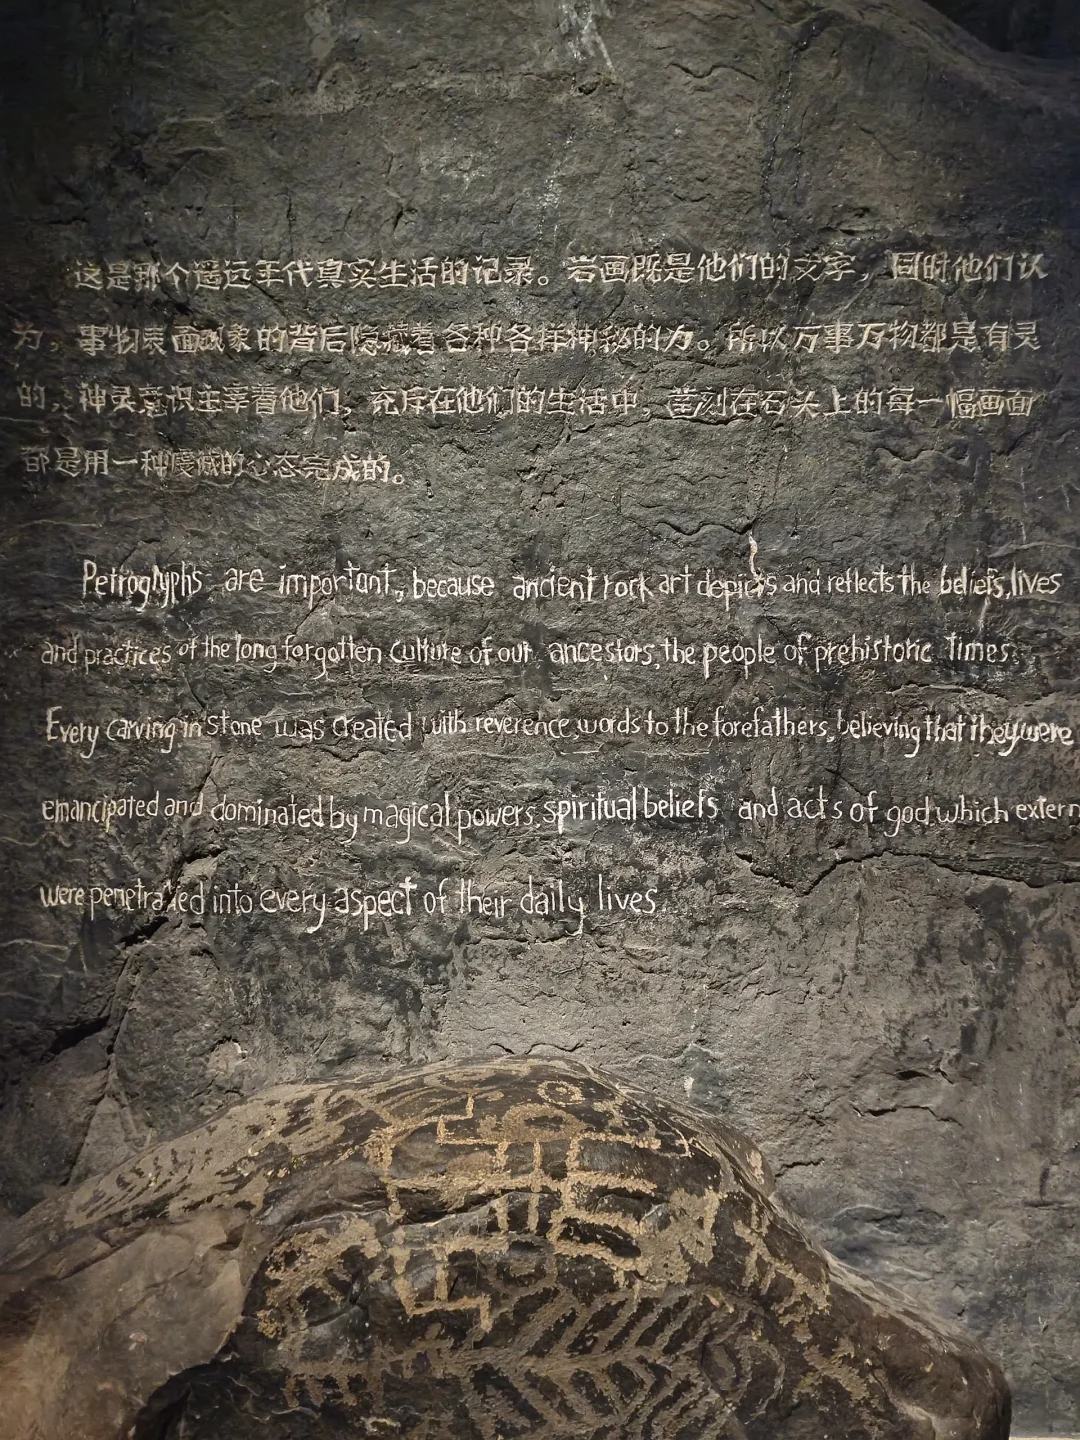 这是那个遥远年代真实生活的记录。岩画既是他们的文字，同时他们认
为，事物表面现象的背后隐藏着各种各样神秘的力。所以万事万物都是有灵
的，神灵意识主宰着他们，充斥在他们的生活中，凿刻在石头上的每一幅画面
都是用一种虔诚的心态完成的。
Petroglyphs are important, because ancient rock art depicts and reflects the beliefs, lives
and practices of the long forgotten culture of our ancestors, the people of prehistoric times.
Every carving in stone was created with reverence words to the forefathers, believing that they were
emancipated and dominated by magical powers, spiritual beliefs and acts of god which extern
were penetrated into every aspect of their daily lives.